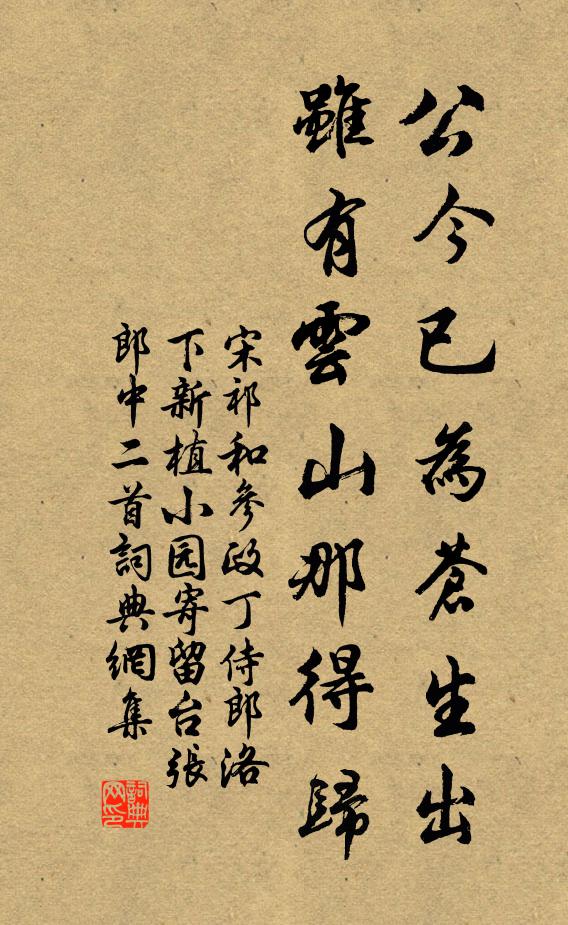 公今已為蒼生出
雖有雲山那得歸
宋祁和參政丁侍郎洛
下新植小园寄留台張
郎中二首詞典網集
詞典网印